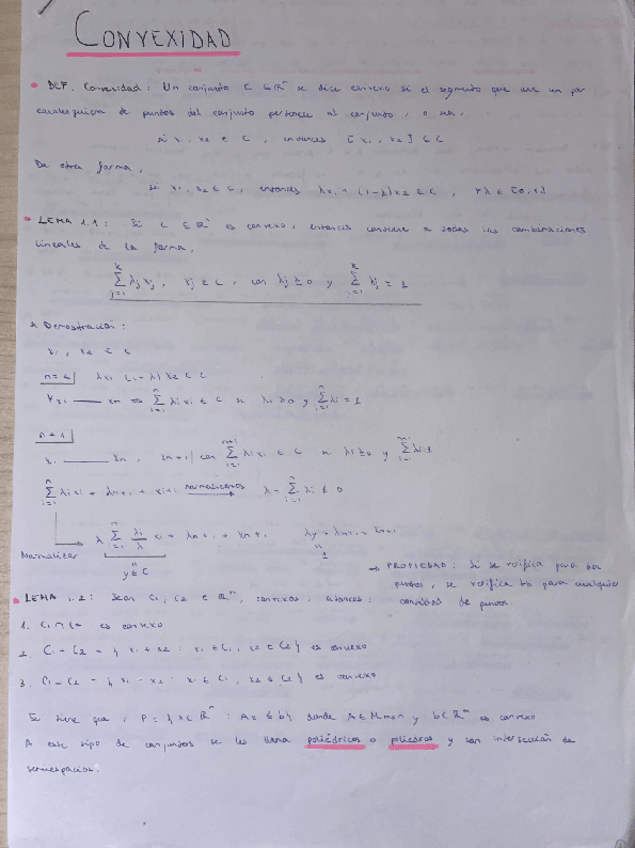 CONVEXIDAD
• DEF. Convexidad: Un conjunto C ⊆ ℝⁿ se dice convexo si el segmento que une un par
cualesquiera de puntos del conjunto pertenece al conjunto, o sea,
si x₁, x₂ ∈ C, entonces [x₁, x₂] ⊆ C
De otra forma,
si x₁, x₂ ∈ C, entonces λx₁ + (1-λ)x₂ ∈ C, ∀λ ∈ [0,1]
• LEMA 1.1: Si C ⊆ ℝⁿ es convexo, entonces contiene a todas las combinaciones
lineales de la forma,
∑ⱼ₌₁ᵏ λⱼxⱼ, xⱼ ∈ C, con λⱼ ≥ 0 y ∑ⱼ₌₁ᵏ λⱼ = 1
* Demostración:
x₁, x₂ ∈ C
λx₁ (1-λ)x₂ ∈ C
∑ᵢ₌₁ⁿ λᵢxᵢ ∈ C λᵢ ≥ 0 y ∑ᵢ₌₁ⁿ λᵢ = 1
n+1
x₁ — xₙ, xₙ₊₁ / con ∑ᵢ₌₁ⁿ⁺¹ λᵢxᵢ ∈ C λᵢ ≥ 0 y
normalicemos
Normalizar
y ∈ C
→ PROPIEDAD: Si se verifica para dos
puntos, se verifica tb para cualquier
cantidad de puntos.
• LEMA 1.2: Sean C₁, C₂ ∈ ℝⁿ, convexos, entonces:
1. C₁ ∩ C₂ es convexo
2. C₁ + C₂ = { x₁ + x₂ : x₁ ∈ C₁, x₂ ∈ C₂} es convexo
3. C₁ - C₂ = { x₁ - x₂ : x₁ ∈ C₁, x₂ ∈ C₂} es convexo
Se tiene que, P = { x ∈ ℝⁿ : Ax ≤ b} donde A ∈ Mₘₓₙ y b ∈ ℝᵐ es convexo
A este tipo de conjuntos se les llama poliédricos o poliedros y son intersección de
semiespacios.